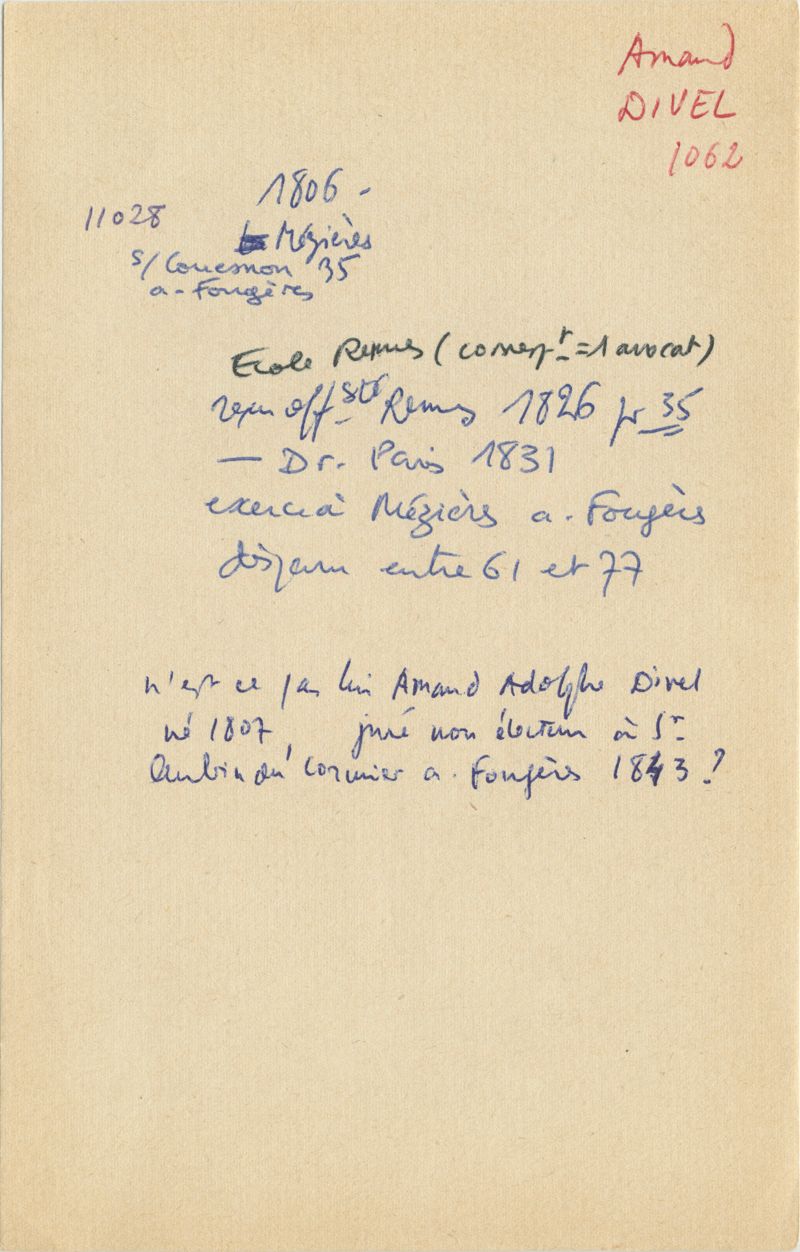 Amand
DIVEL
1062
1806 -
11028
Mézières
s/ Couesnon 35
a. Fougères
Ecole Rennes (correspt = 1 avocat)
reçu off. sté Rennes 1826 pr 35
— Dr. Paris 1831
exerce à Mézières a. Fougères
disparu entre 61 et 77
n'est ce pas lui Amand Adolphe Divel
né 1807, juré non électeur à St
Aubin du Cormier a. Fougères 1843 ?